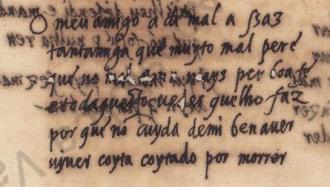 O meu amigo a de mal a ssaz
tantamiga que muyto mal per é
que no mays per boa ffe
e todaquesto que lho faz
por que no cuyda de mi ben auer
uyuer coyta coytado por morrer